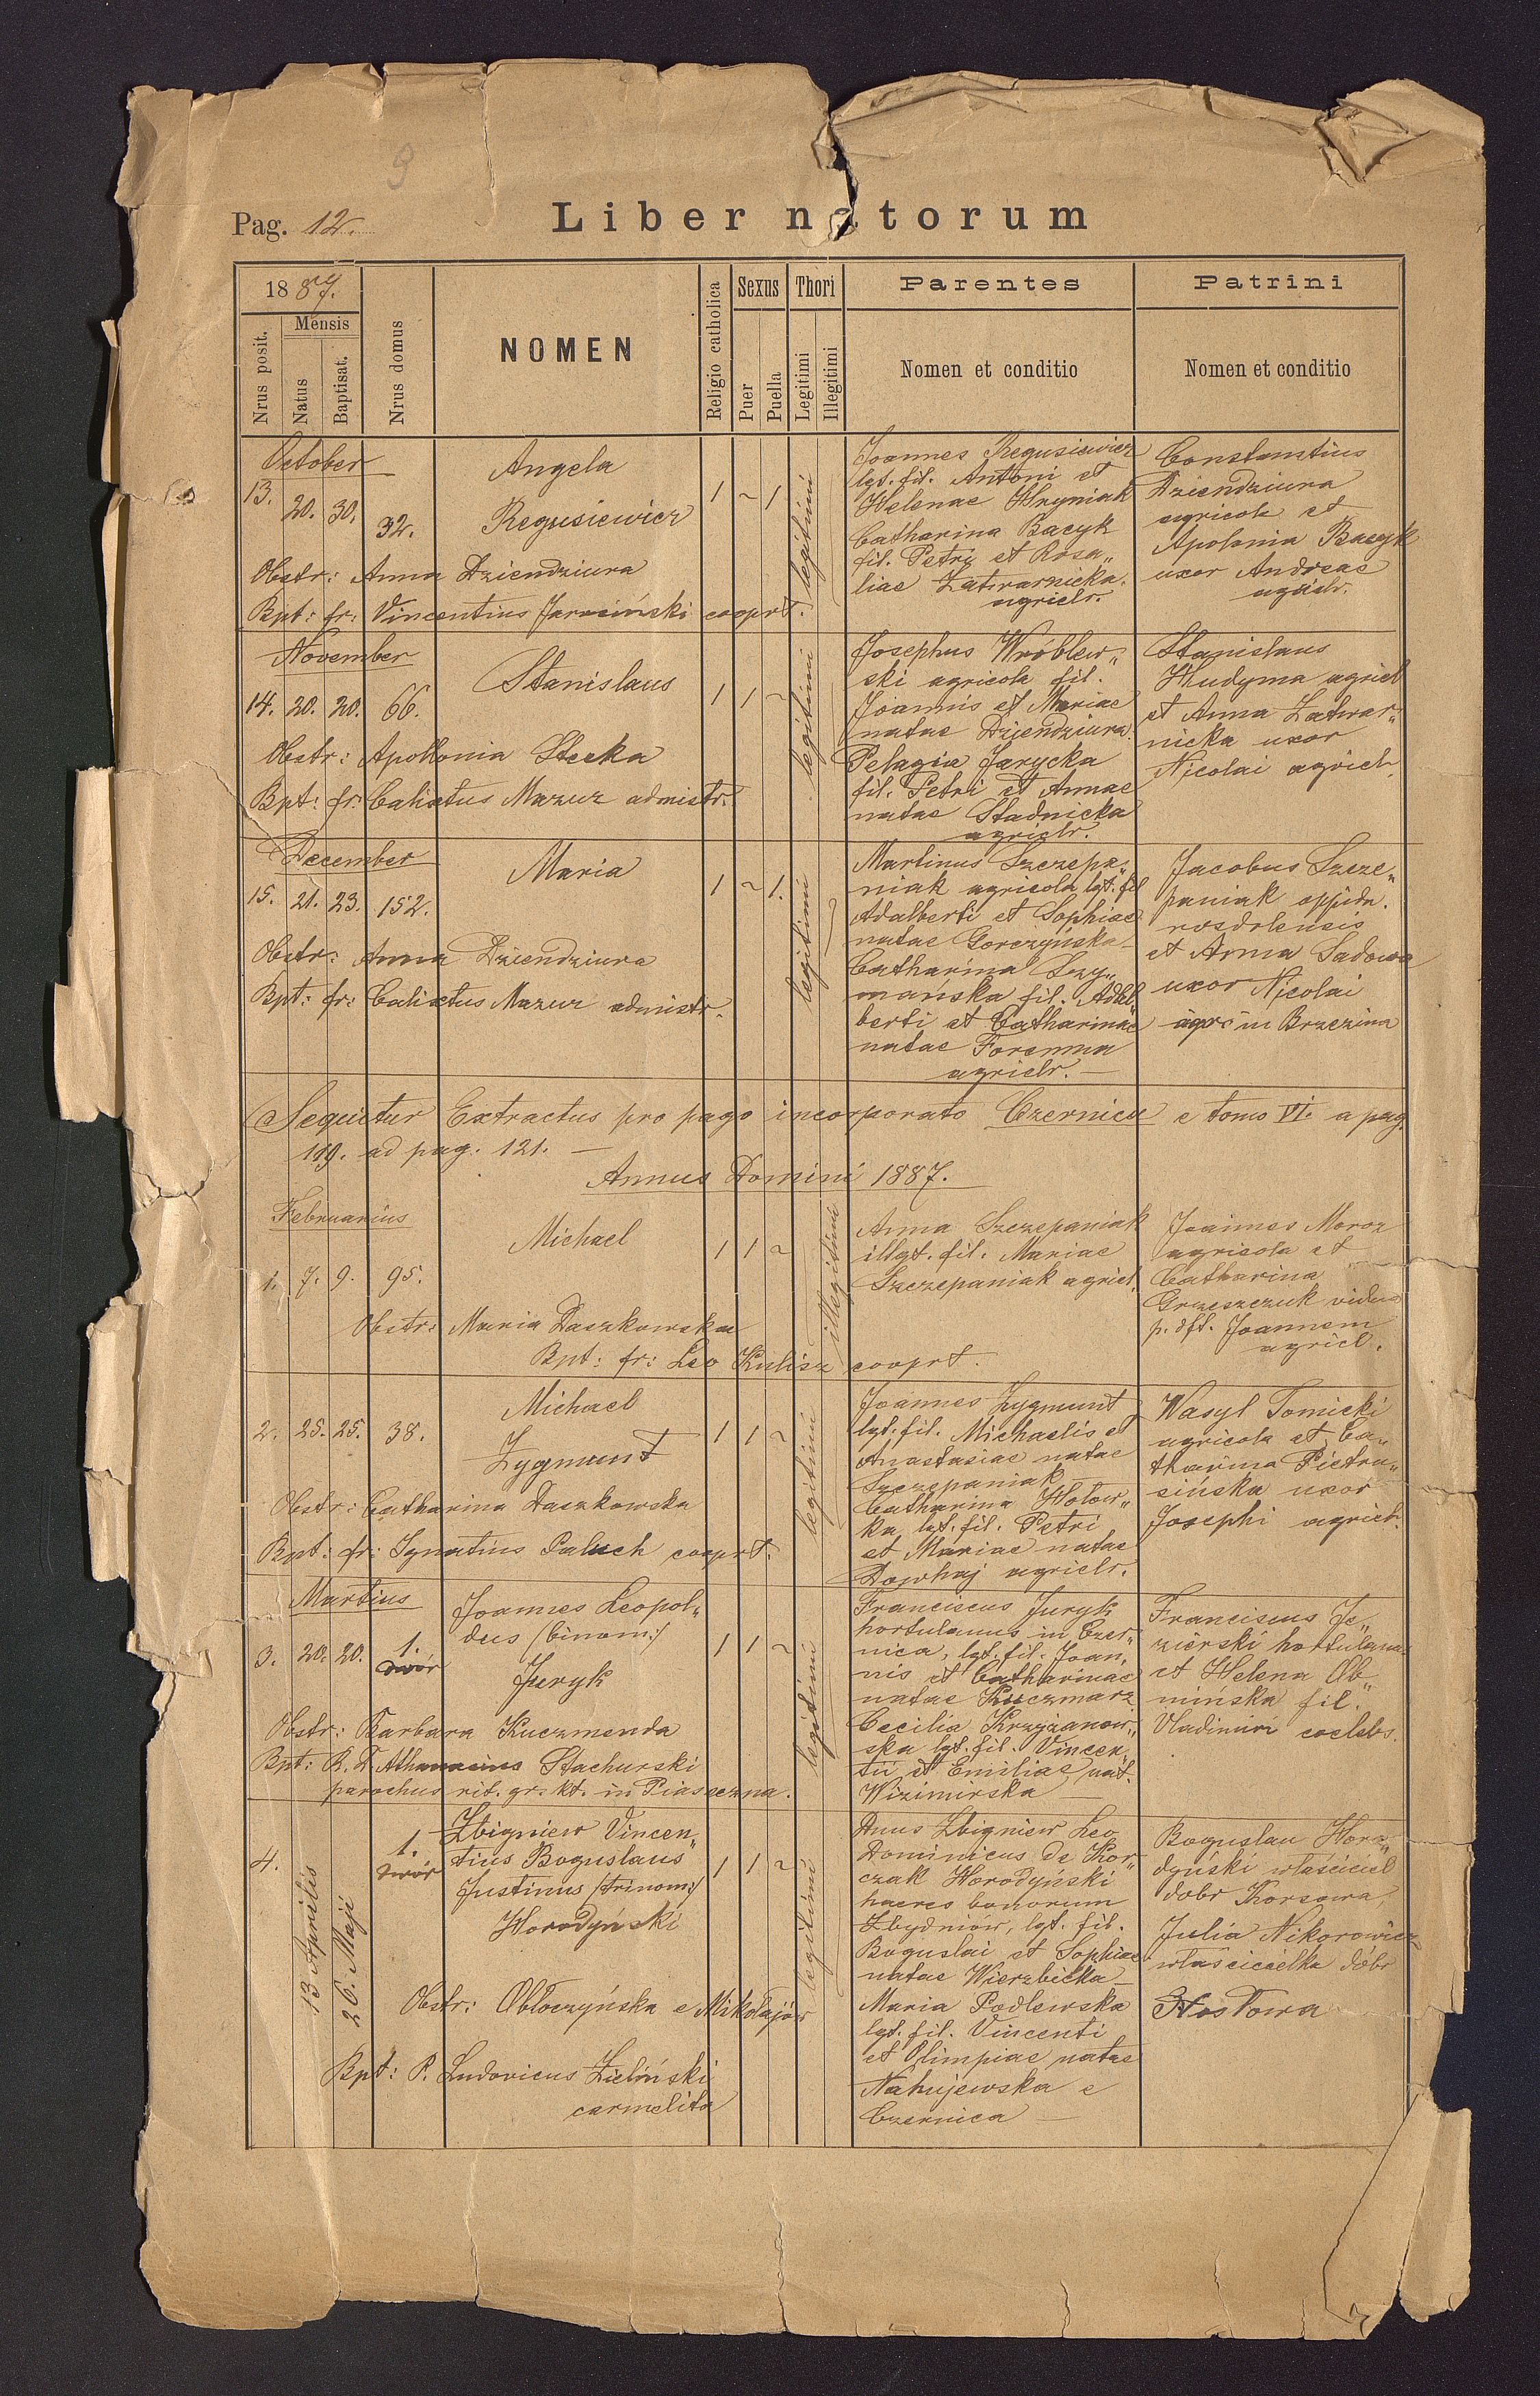 9
Pag. 12.
Liber natorum
1887.
Mensis
Nrus posit.
Natus
Baptisat.
Nrus domus
NOMEN
Religio catholica
Sexus
Puer
Puella
Thori
Legitimi
Illegitimi
Parentes
Nomen et conditio
Patrini
Nomen et conditio
October
13. 20. 30. 32.
Angela
Regusiewicz
1 ~ 1
legitimi
Obstr: Anna Dziendziura
Bpt: fr: Vincentius Jarosiński cooprt.
Joannes Regusiewicz
lgt. fil. Antoni et
Helenae Hryniak
Catharina Bacyk
fil. Petri et Rosa„
liae Zatwarnicka.
agriclr.
Constantius
Dziendziura
agricola et
Apolonia Bacyk
uxor Andreae
agriclr.
November
14. 20. 20. 66.
Stanislaus
1 1 ~
legitimi
Obstr: Apollonia Stecka
Bpt: fr: Calixtus Mazur admistr.
Josephus Wróblew„
ski agricola fil.
Joannis et Mariae
natae Dziendziura.
Pelagia Jarycka
fil. Petri et Annae
natae Stadnicka
agriclr.
Stanislaus
Hudyma agricl
et Anna Zatwar„
nicka uxor
Nicolai agricl.
December
15. 21. 23. 152.
Maria
1 ~ 1.
legitimi
Obstr: Anna Dziendziura
Bpt: fr: Calixtus Mazur admistr.
Martinus Szczepa„
niak agricola lgt. fil
Adalberti et Sophiae
natae Gorczyńska —
Catharina Szy„
mańska fil. Adal„
berti et Catharinae
natae Foremna
agriclr. —
Jacobus Szcze„
paniak oppida.
rosdolensis
et Anna Sadowa
uxor Nicolai
agr: in Brzezina
Sequitur Extractus pro pago incorporato Czernica e tomo VI. a pag.
119. ad pag. 121. —
Annus Domini 1887.
Februarius
1. 7. 9. 95.
Michael
1 1 ~
illegitimi
Obstr: Maria Daszkowska
Bpt: fr: Leo Kulisz cooprt.
Anna Szczepaniak
illgt. fil. Mariae
Szczepaniak agricl.
Joannes Moroz
agricola et
Catharina
Grzeszczuk vidua
p. dft. Joannem
agricl.
2. 25. 25. 38.
Michael
Zygmunt
1 1 ~
legitimi
Obstr: Catharina Daszkowska
Bpt: fr: Ignatius Paluch cooprt.
Joannes Zygmunt
lgt. fil. Michaelis et
Anastasiae natae
Szczepaniak —
Catharina Hołow„
ka lgt. fil. Petri
et Mariae natae
Dowhaj agriclr.
Wasyl Tomicki
agricola et Ca„
tharina Pietru„
sińska uxor
Josephi agricl.
Martius
3. 20. 20. 1.
dwór
Joannes Leopol„
dus (binom:)
Juryk
1 1 ~
legitimi
Obstr: Barbara Kuczmenda
Bpt: R. D. Athanasius Stachurski
parochus rit. gr. kt. in Piaseczna.
Franciscus Juryk
hortulanus in Czer„
nica, lgt. fil. Joan„
nis et Catharinae
natae Kuczmarz
Cecilia Krzyżanow„
ska lgt. fil. Vincen„
tii et Emiliae nat.
Wizimirska —
Franciscus Je„
zierski hortulanus
et Helena Ob„
mińska fil.
Vladimiri coelebs.
4.
13 Aprilis
26. Maji
1.
dwór
Zbigniew Vincen„
tius Boguslaus
Justinus (trinom:)
Horodyński
1 1 ~
legitimi
Obstr: Obłoczyńska e Mikołajów
Bpt: P. Ludovicus Zieliński
carmelita
Dnus Zbigniew Leo
Dominicus de Kor„
czak Horodyński
haeres bonorum
Zbydniów, lgt. fil.
Boguslai et Sophiae
natae Wierzbicka —
Maria Podlewska
lgt. fil. Vincenti
et Olimpiae natae
Nahujewska e
Czernica —
Boguslau Horo„
dyński właściciel
dobr Korsowa,
Julia Nikorowicz
właścicielka dóbr